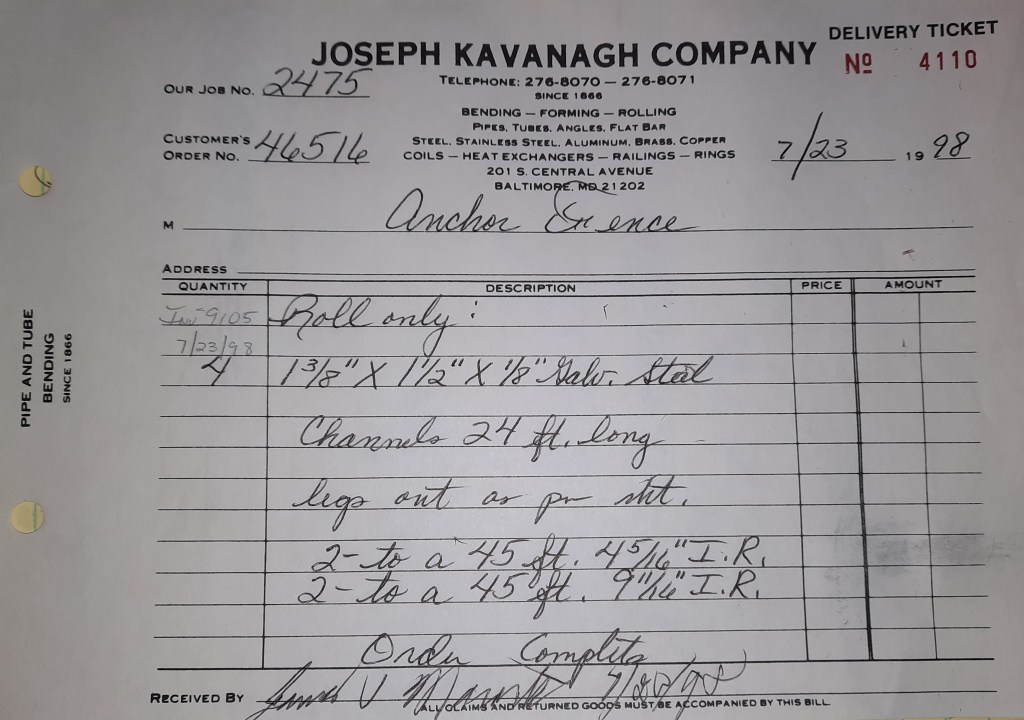 DELIVERY TICKET
JOSEPH KAVANAGH COMPANY
Nº 4110
TELEPHONE: 276-8070 — 276-8071
OUR JOB NO. 2475
SINCE 1866
BENDING — FORMING — ROLLING
PIPES, TUBES, ANGLES, FLAT BAR
CUSTOMER'S ORDER NO. 46516
STEEL, STAINLESS STEEL, ALUMINUM, BRASS, COPPER
COILS — HEAT EXCHANGERS — RAILINGS — RINGS
7/23 1998
201 S. CENTRAL AVENUE
BALTIMORE, MD 21202
M Anchor Fence
ADDRESS
QUANTITY DESCRIPTION PRICE AMOUNT
Inv-9105 Roll only:
7/23/98
4 1 3/8" X 1 1/2" X 1/8" Galv. Steel
Channels 24 ft. long
legs out as per sht.
2- to a 45 ft. 4 5/16" I.R.
2- to a 45 ft. 9 11/16" I.R.
Order Complete
RECEIVED BY James V
ALL CLAIMS AND RETURNED GOODS MUST BE ACCOMPANIED BY THIS BILL
PIPE AND TUBE
BENDING
SINCE 1866